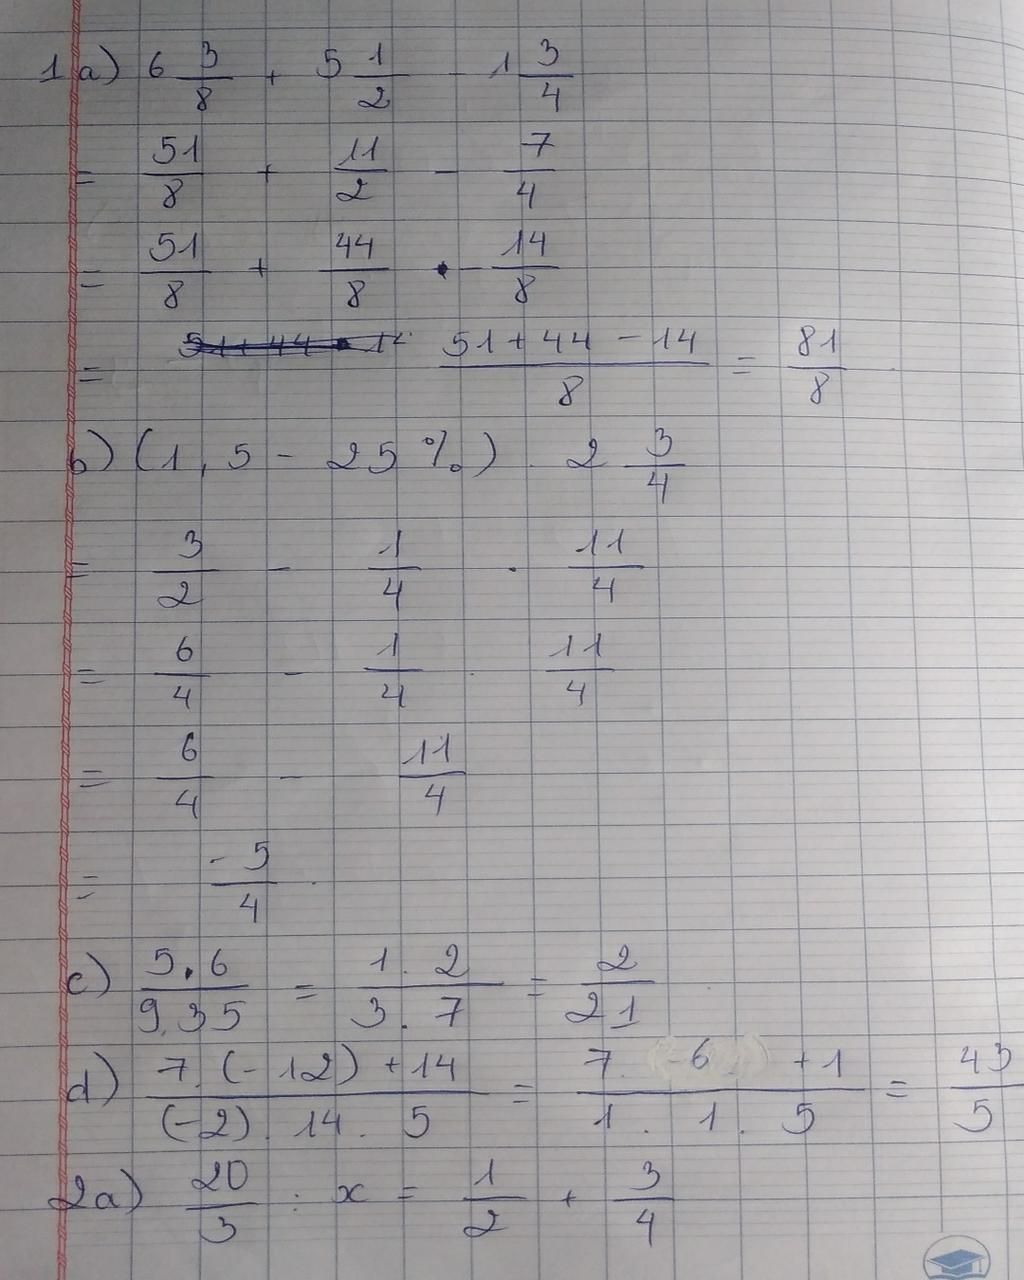 1 a) 6 3/8 + 5 1/2 - 1 3/4
= 51/8 + 11/2 - 7/4
= 51/8 + 44/8 - 14/8
= (51 + 44 - 14)/8 = 81/8
b) (1,5 - 25%) . 2 3/4
= 3/2 - 1/4 . 11/4
= 6/4 - 1/4 . 11/4
= 6/4 - 11/4
= -5/4
c) (5.6)/(9.35) = (1.2)/(3.7) = 2/21
d) (7.(-12) + 14)/((-2).14.5) = (7. -6 + 1)/(1.1.5) = 43/5
2a) 20/3 : x = 1/2 + 3/4